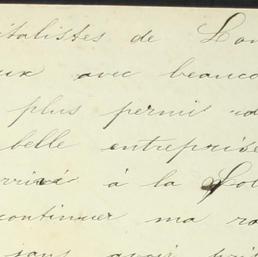 italistes de Lon
eux avec beauco
plus permis
belle entreprise
arrivé à la
continuer ma ro
sans avoir pris